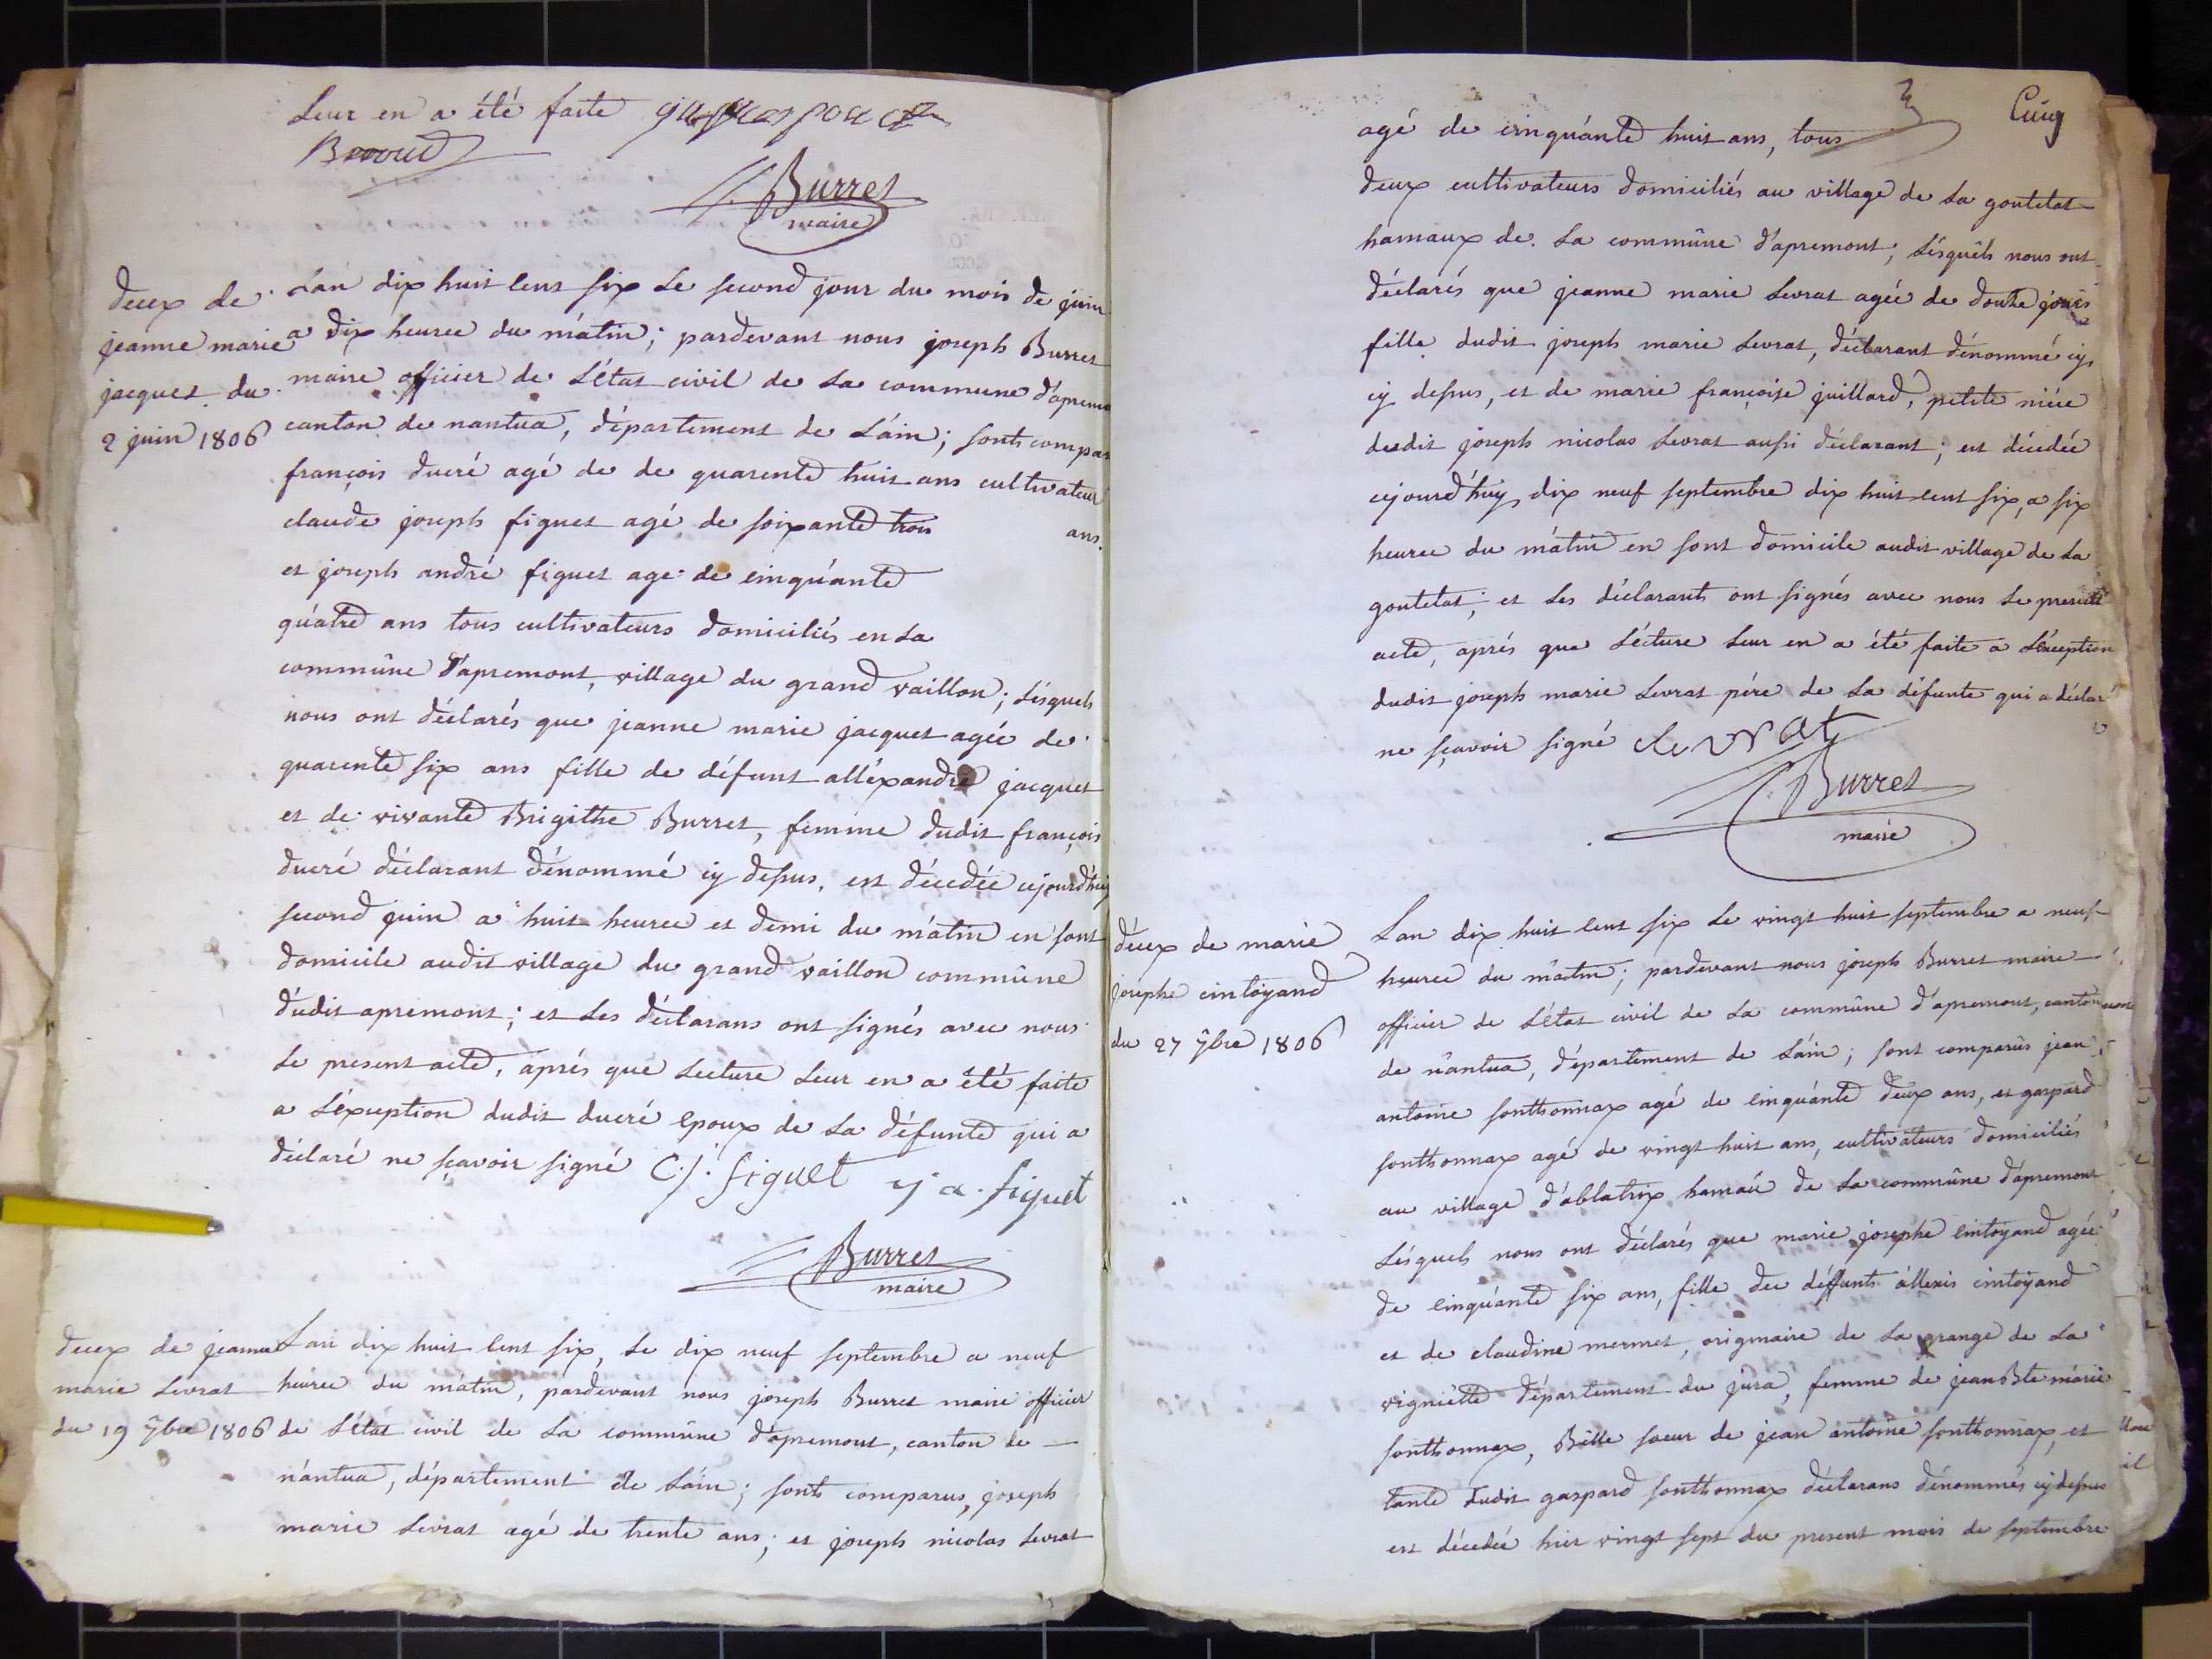 Leur en a été faite
J. Burret
maire
deces de
jeanne marie
jacquet du
2 juin 1806
L'an dix huit cent six Le second jour du mois de juin
a dix heures du mâtin; pardevant nous joseph Burret
maire officier de L'état civil de La commune d'apremo
canton de nantua, département de L'ain; sonts compar
françois ducré agé de de quarente huit ans cultivateur
claude joseph figuet agé de soixante trois ans.
et joseph andré figuet agé de cinquante
quâtre ans tous cultivateurs domiciliés en La
commûne d'apremont, village du grand vaillon; Lésquels
nous ont déclarés que jeanne marie jacquet agée de
quarente six ans fille de défunt alléxandre jacquet
et de vivante Brigithe Burret, femme dudit françois
ducré déclarant dénommé cy dessus, est décedée cejourd'huy
second juin a huit heures et demi du mâtin en sont
domicile audit village du grand vaillon commûne
dudit apremont; et Les déclarans ont signés avec nous
Le present acte, aprés que Lecture Leur en a été faite
a L'éxception dudit ducré epoux de La défunte qui a
déclaré ne sçavoir signé C. j. figuet j a. figuet
J. Burret
maire
deces de jeanne
marie Levrat
du 19 7bre 1806
L'an dix huit cent six, Le dix neuf septembre a neuf
heures du mâtin, pardevant nous joseph Burret maire officier
de L'état civil de La commûne d'apremont, canton de
nantua, département de L'ain; sonts comparus, joseph
marie Levrat agé de trente ans; et joseph nicolas Levrat
Cinq
agé de cinquânte huit ans, tous
deux cultivateurs domiciliés au village de La goutelat
hamaux de La commûne d'apremont, Lésquels nous ont
déclarés que jeanne marie Levrat agée de douze jours
fille dudit joseph marie Levrat, déclarant dénommé cy
cy dessus, et de marie françoise juillard, petite niéce
dudit joseph nicolas Levrat aussi déclarant; est décedée
cejourd'huy dix neuf septembre dix huit cent six, a six
heures du mâtin en sont domicile audit village de La
goutelat; et Les déclarants ont signés avec nous Le present
acte, aprés que Lécture Leur en a été faite a L'éxception
dudit joseph marie Levrat pére de La défunte qui a déclaré
ne sçavoir signé Levrat
J. Burret
maire
déces de marie
josephe cintoyand
du 27 7bre 1806
L'an dix huit cent six Le vingt huit septembre a neuf
heures du mâtin; pardevant nous joseph Burret maire
officier de L'état civil de La commûne d'apremont, canton
de nântua, département de L'ain; sont comparûs jean
antoine sonthonnax agé de cinquânte deux ans, et gaspard
sonthonnax agé de vingt huit ans, cultivâteurs domiciliés
au village d'ablatrix hamaû de La commûne d'apremont
Lésquels nous ont déclarés que marie josephe cintoyand agée
de cinquânte six ans, fille des déffunts âllexis cintoyand
et de claudine mermet, originaire de La grange de La
vigniette département du jura, femme de jean Bte mârie
sonthonnax, Bélle soeur de jean antoine sonthonnax, et
tante dudit gaspard sonthonnax déclarans dénommés cydessus
est décedée hier vingt sept du present mois de septembre